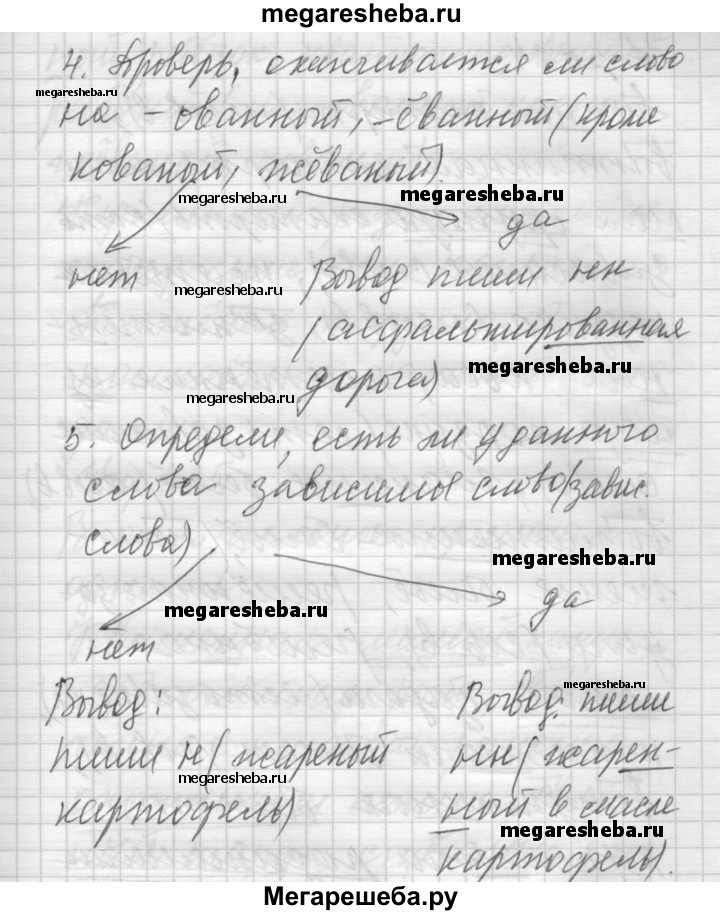 megaresheba.ru
4. Проверь, оканчивается ли слово
megaresheba.ru
на -ованный, -ёванный (кроме
кованый, жёваный).
megaresheba.ru
megaresheba.ru
да
нет
megaresheba.ru
Вывод пиши нн
(асфальтированная
megaresheba.ru
megaresheba.ru
дорога)
5. Определи, есть ли у данного
слова зависимое слово (завис.
слова)
megaresheba.ru
megaresheba.ru
да
нет
megaresheba.ru
Вывод:
Вывод: пиши
пиши н (жареный
нн (жарен-
megaresheba.ru
картофель)
ный в масле
megaresheba.ru
картофель).
Мегарешеба.ру